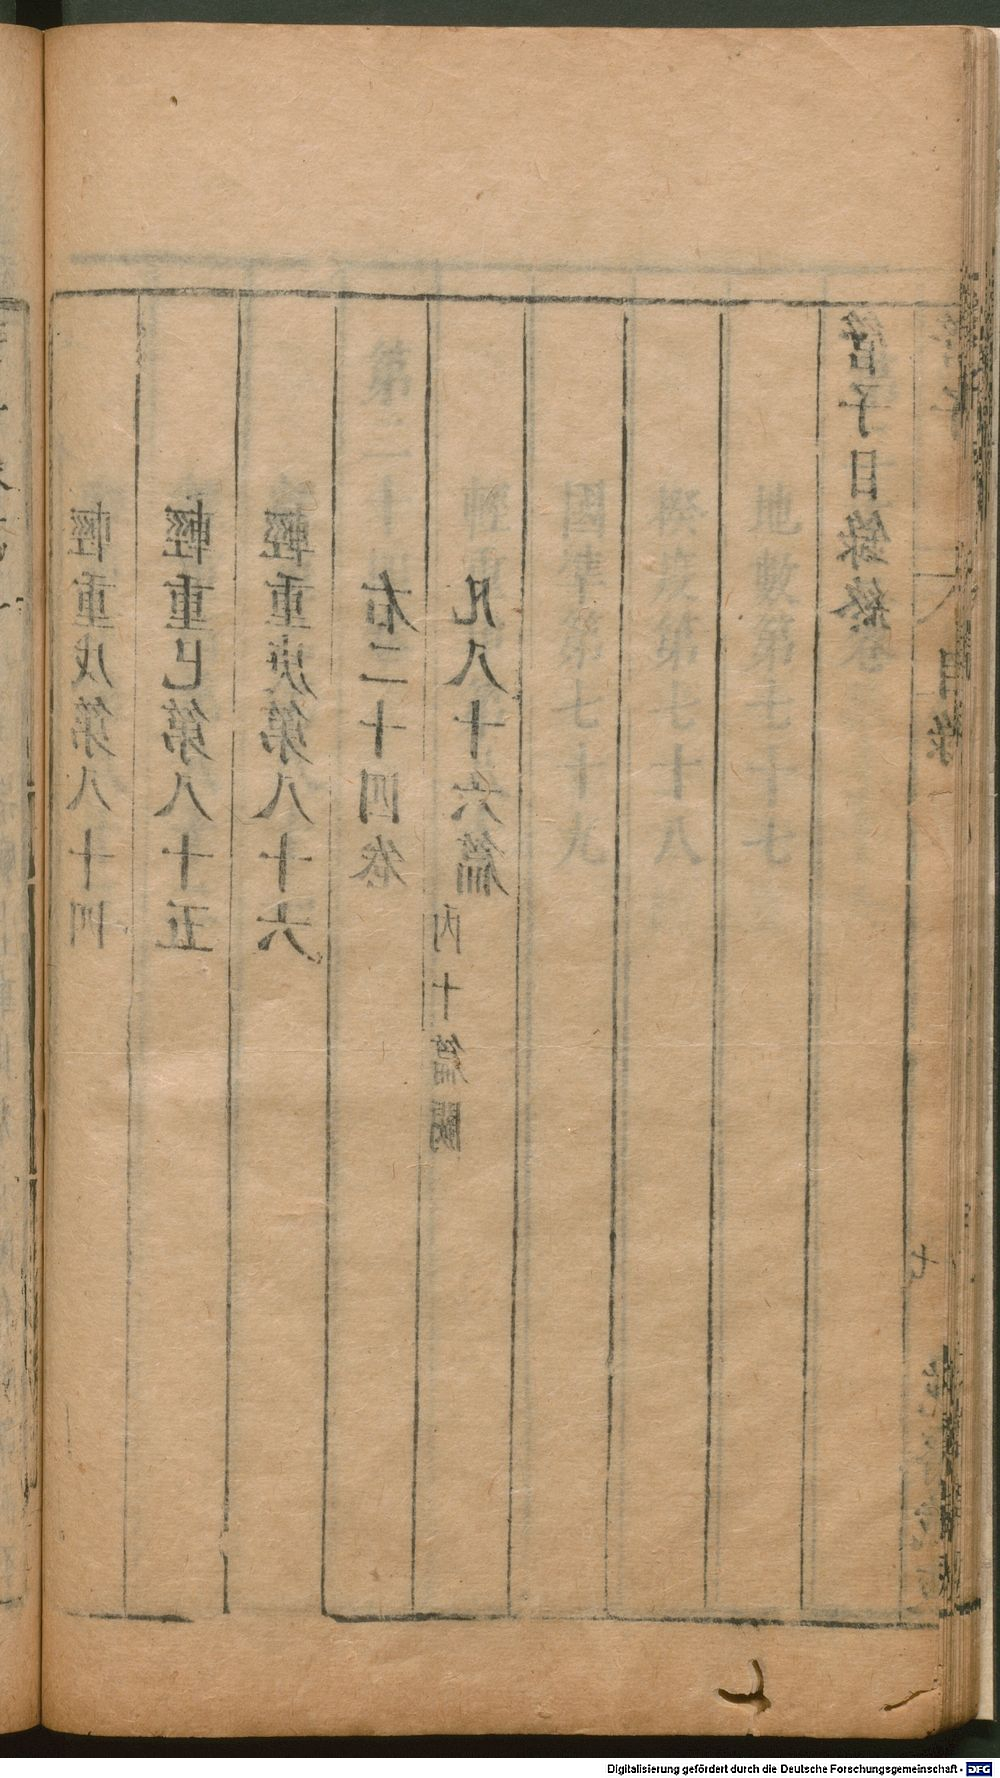 輕重戊第八十四
輕重己第八十五
輕重庚第八十六
右二十四卷
凡八十六篇內十篇闕
管子目錄終
目錄
七
地數第七十七
揆度第七十八
國準第七十九
輕重
第二十
Digitalisierung gefördert durch die Deutsche Forschungsgemeinschaft - DFG